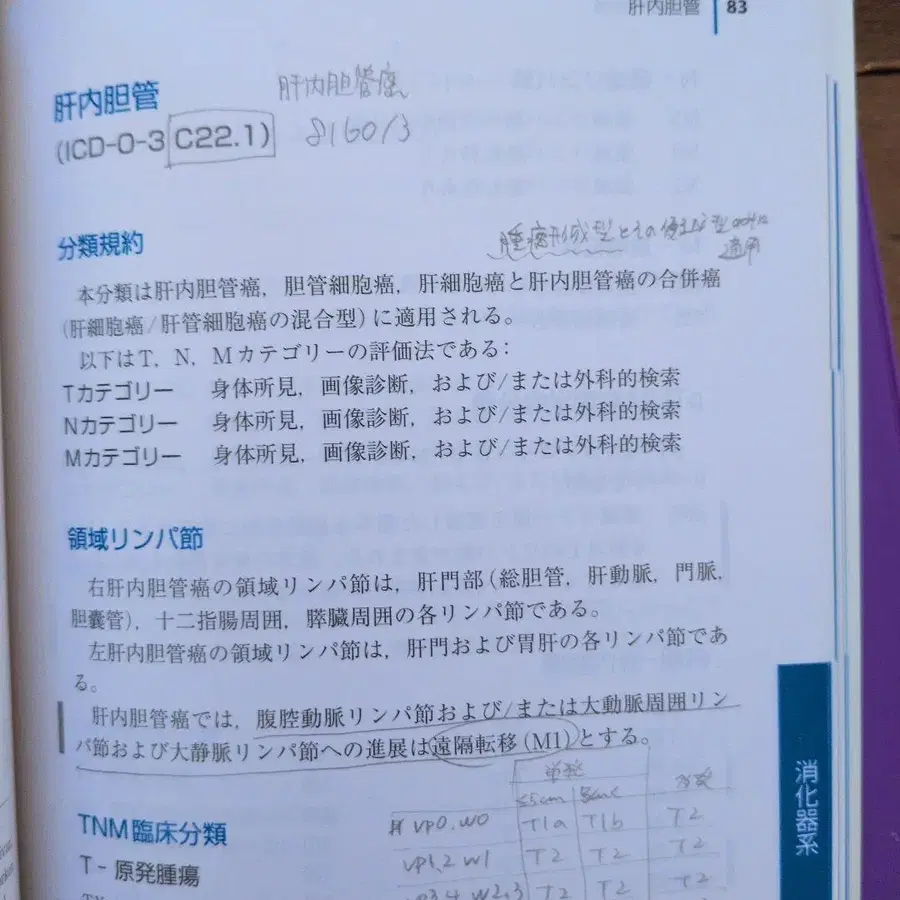 肝内胆管 83
肝内胆管 肝内胆管癌
(ICD-O-3 C22.1) 8160/3
分類規約
腫瘤形成型とその優越型のみに
適用
本分類は肝内胆管癌，胆管細胞癌，肝細胞癌と肝内胆管癌の合併癌
(肝細胞癌/肝管細胞癌の混合型)に適用される。
以下はT，N，Mカテゴリーの評価法である：
Tカテゴリー 身体所見，画像診断，および/または外科的検索
Nカテゴリー 身体所見，画像診断，および/または外科的検索
Mカテゴリー 身体所見，画像診断，および/または外科的検索
領域リンパ節
右肝内胆管癌の領域リンパ節は，肝門部(総胆管，肝動脈，門脈，
胆嚢管)，十二指腸周囲，膵臓周囲の各リンパ節である。
左肝内胆管癌の領域リンパ節は，肝門および胃肝の各リンパ節であ
る。
肝内胆管癌では，腹腔動脈リンパ節および/または大動脈周囲リン
パ節および大静脈リンパ節への進展は遠隔転移(M1)とする。
単発 多発
≤5cm
vp0, w0 T1a T1b T2
vp1,2 w1 T2 T2 T2
vp3,4 w2,3 T2 T2 T2
TNM臨床分類
T - 原発腫瘍
TX
消化器系